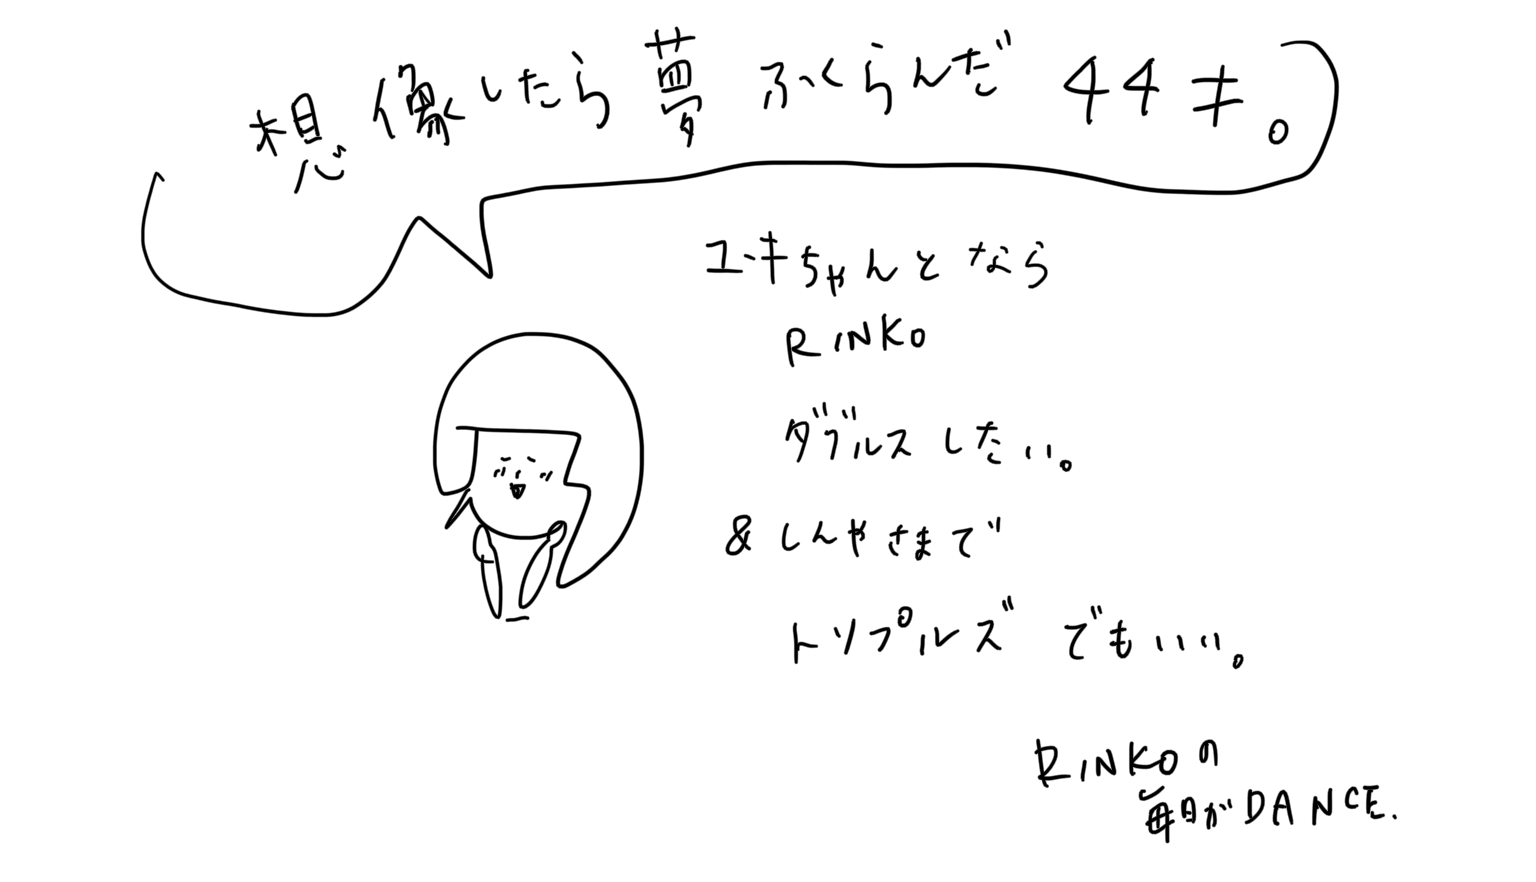 想像したら夢ふくらんだ44才。
ユキちゃんとなら
RINKO
ダブルスしたい。
&しんやさまで
トリプルズでもいい。
RINKOの
毎日がDANCE.